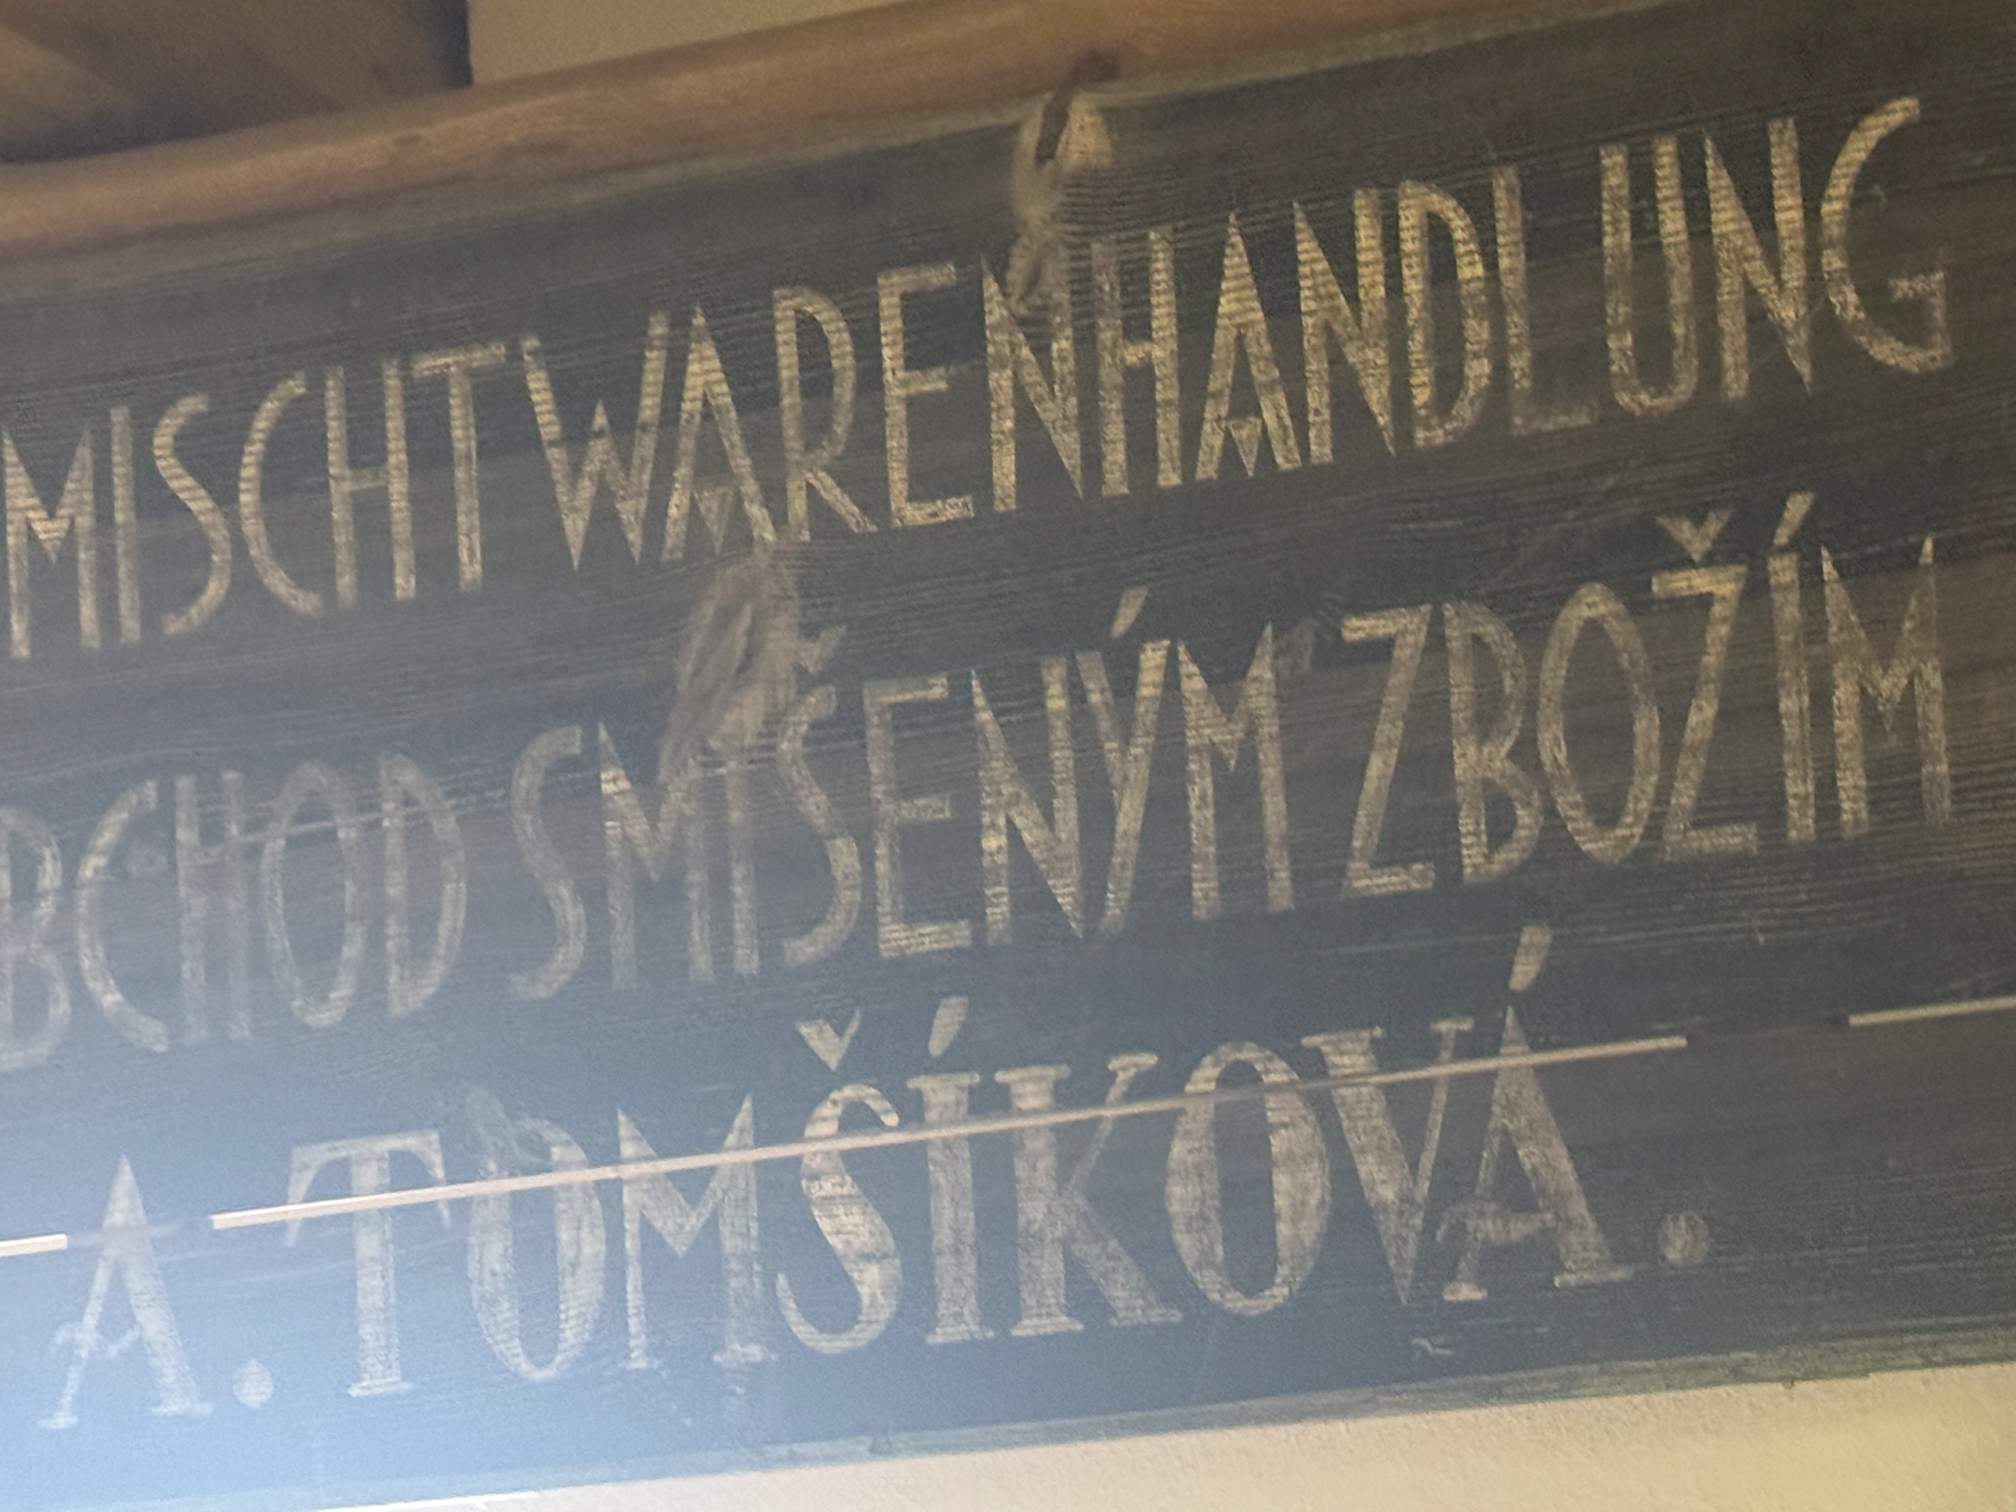 MISCHTWARENHANDLUNG
BCHOD SMÍŠENÝM ZBOŽÍM
A. TOMŠÍKOVÁ.